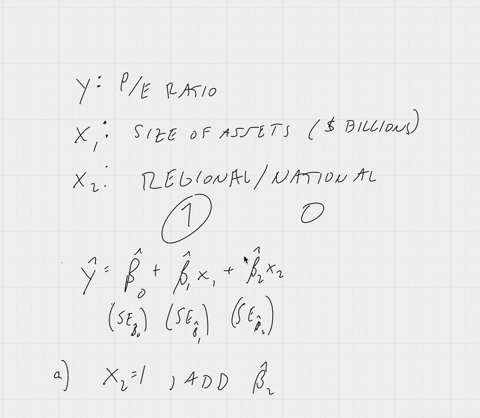 Y: P/E RATIO
X₁: SIZE OF ASSETS ($ BILLIONS)
X₂: REGIONAL/NATIONAL
1 0
Ŷ = β̂₀ + β̂₁ X₁ + β̂₂ X₂
(SE_β̂₀) (SE_β̂₁) (SE_β̂₂)
a) X₂=1 , ADD β̂₂